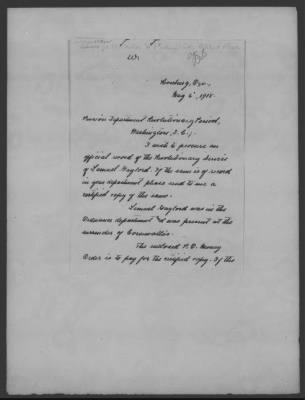 May 6, 1915.
Pension Department Revolutionary Period,
Washington, D. C.;
I wish to procure an
official record of the Revolutionary Service
of Lemuel Gaylord. If the same is of record
in your department please send to me a
certified copy of the same.
Lemuel Gaylord was in the
Ordnance department and was present at the
surrender of Cornwallis.
The enclosed P. O. Money
Order is to pay for the certified copy. If the